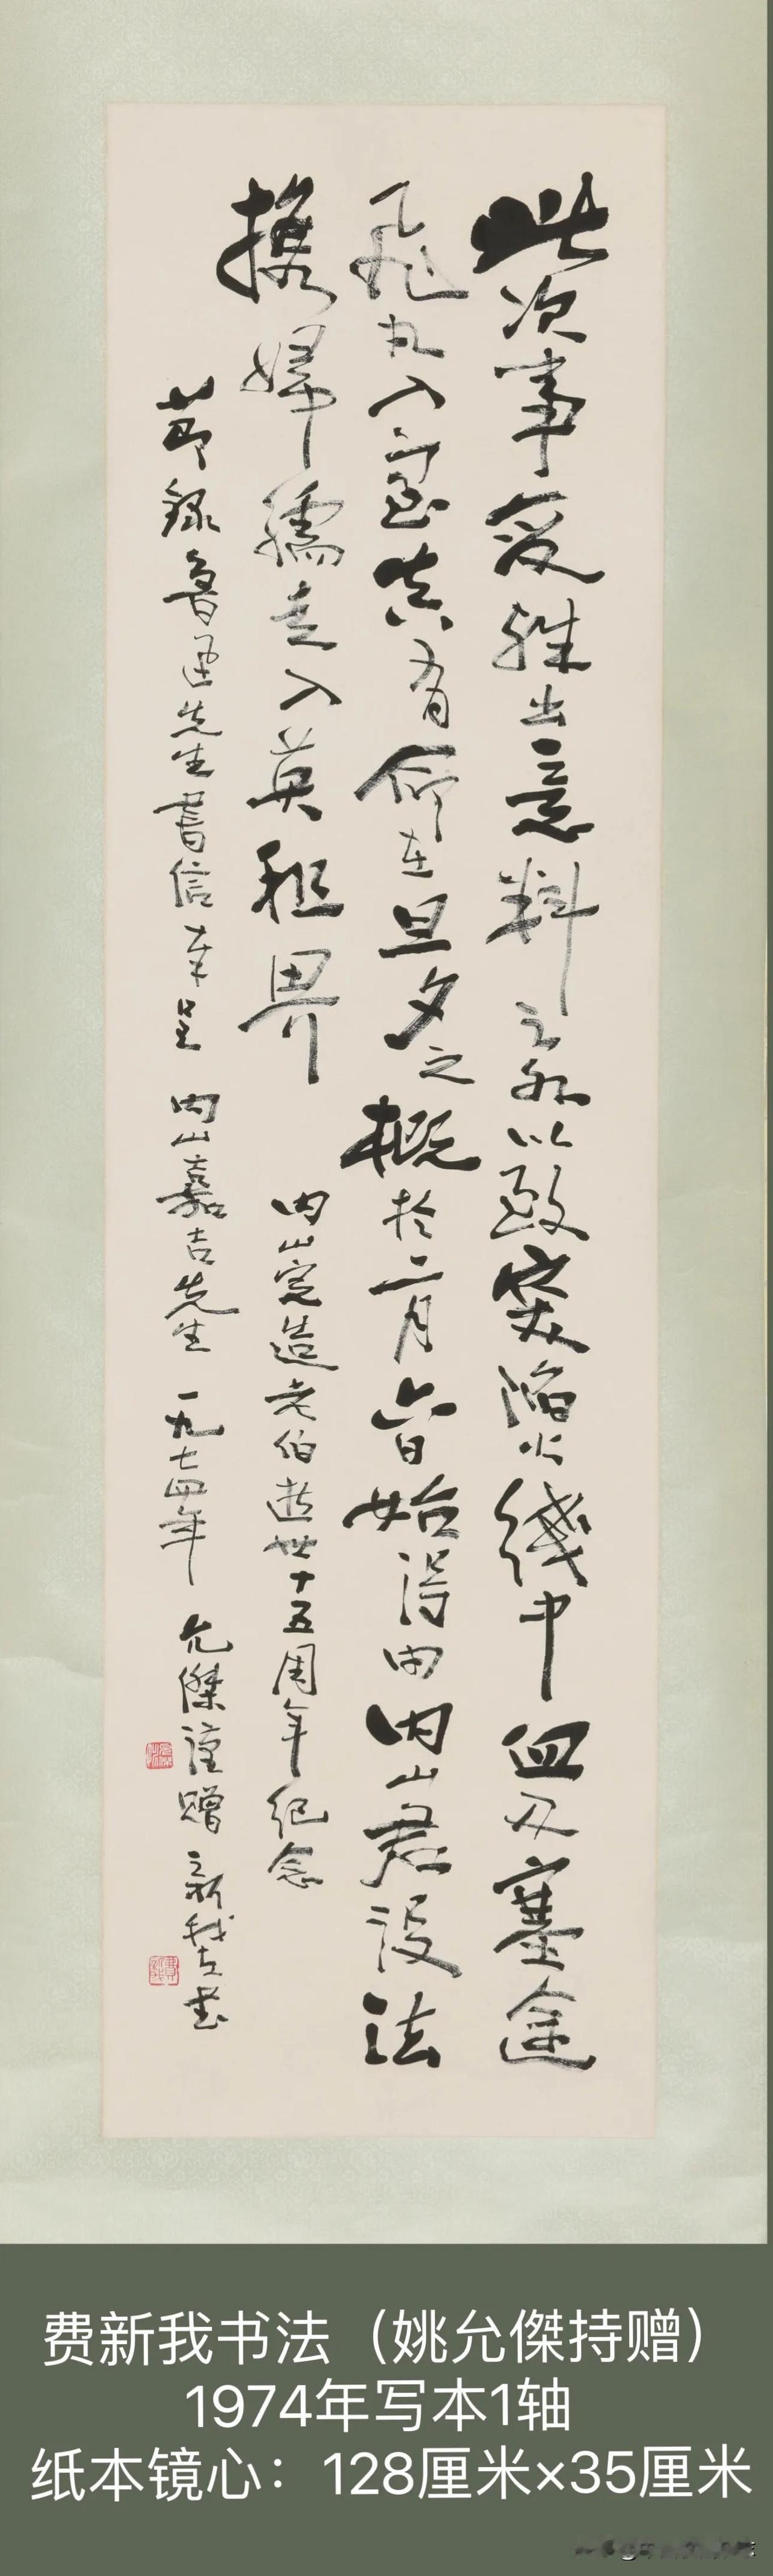 此次事变殊出意料之外以致突陷火線中血刃塞途
飛丸入室真有命在旦夕之概於二月六日始得由内山君设法
携婦孺走入英租界 内山完造老伯逝世十五周年纪念
节録魯迅先生書信奉呈 内山嘉吉先生 一九七四年 允傑謹贈 新我左书
费新我书法（姚允傑持赠）
1974年写本1轴
纸本镜心：128厘米×35厘米